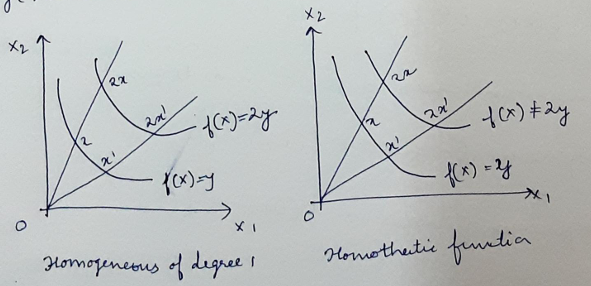 x2
2x
2x'
f(x)=2y
x
x'
f(x)=y
O
x1
Homogeneous of degree 1
x2
2x
2x'
f(x) ≠ 2y
x
x'
f(x) = y
O
x1
Homothetic function